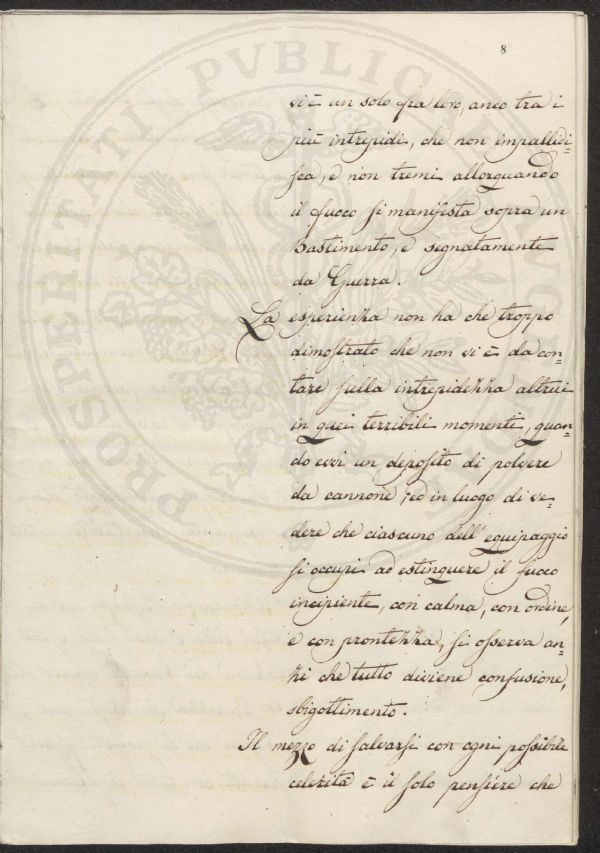 8
vi è un solo fra loro, anco tra i
più intrepidi, che non impallidi=
sca, e non tremi allorquando
il fuoco si manifesta sopra un
bastimento, e segnatamente
da Guerra.
La esperienza non ha che troppo
dimostrato che non vi è da con=
tare sulla intrepidezza altrui
in quei terribili momenti, quan=
do evvi un deposito di polvere
da cannone; ed in luogo di ve=
dere che ciascuno dell' equipaggio
si occupi ad estinguere il fuoco
incipiente, con calma, con ordine,
e con prontezza, si osserva an=
zi che tutto diviene confusione,
sbigottimento.
Il mezzo di salvarsi con ogni possibile
celerità è il solo pensiére che
PROSPERITATI PVBLICAE AVGENDAE